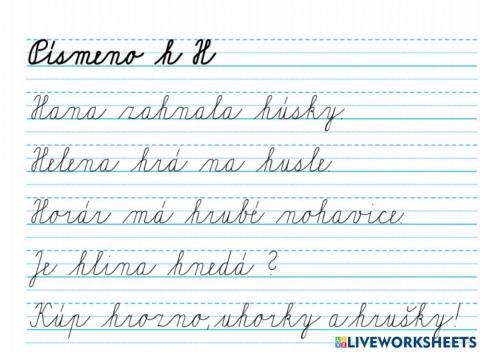 Písmeno h H
Hana zahnala húsky.
Helena hrá na husle.
Horár má hrubé nohavice.
Je hlina hnedá ?
Kúp hrozno, uhorky a hrušky!
LIVEWORKSHEETS